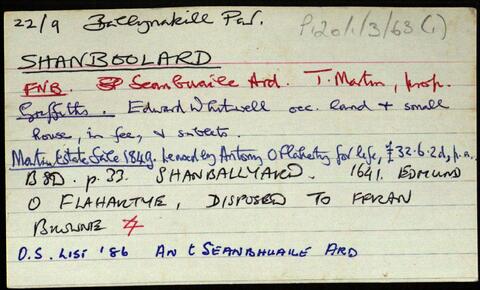 22/9 Ballynakill Par. P120/1/3/63(1)
SHANBOOLARD
FNB. Seanbuaile Ard. T. Martin, prop.
Griffiths. Edward Whitwell occ. land + small
house, in fee, & sublets.
Martin Estate Sale 1849. Leased by Antony O Flaherty for life, £32.6.2d, p.a.
B&D. p. 33. SHANBALLYARD. 1641. EDMUND
O FLAHARTYE, DISPOSED TO FERAN
O.S. LIST '86 AN tSEANBHUAILE ARD